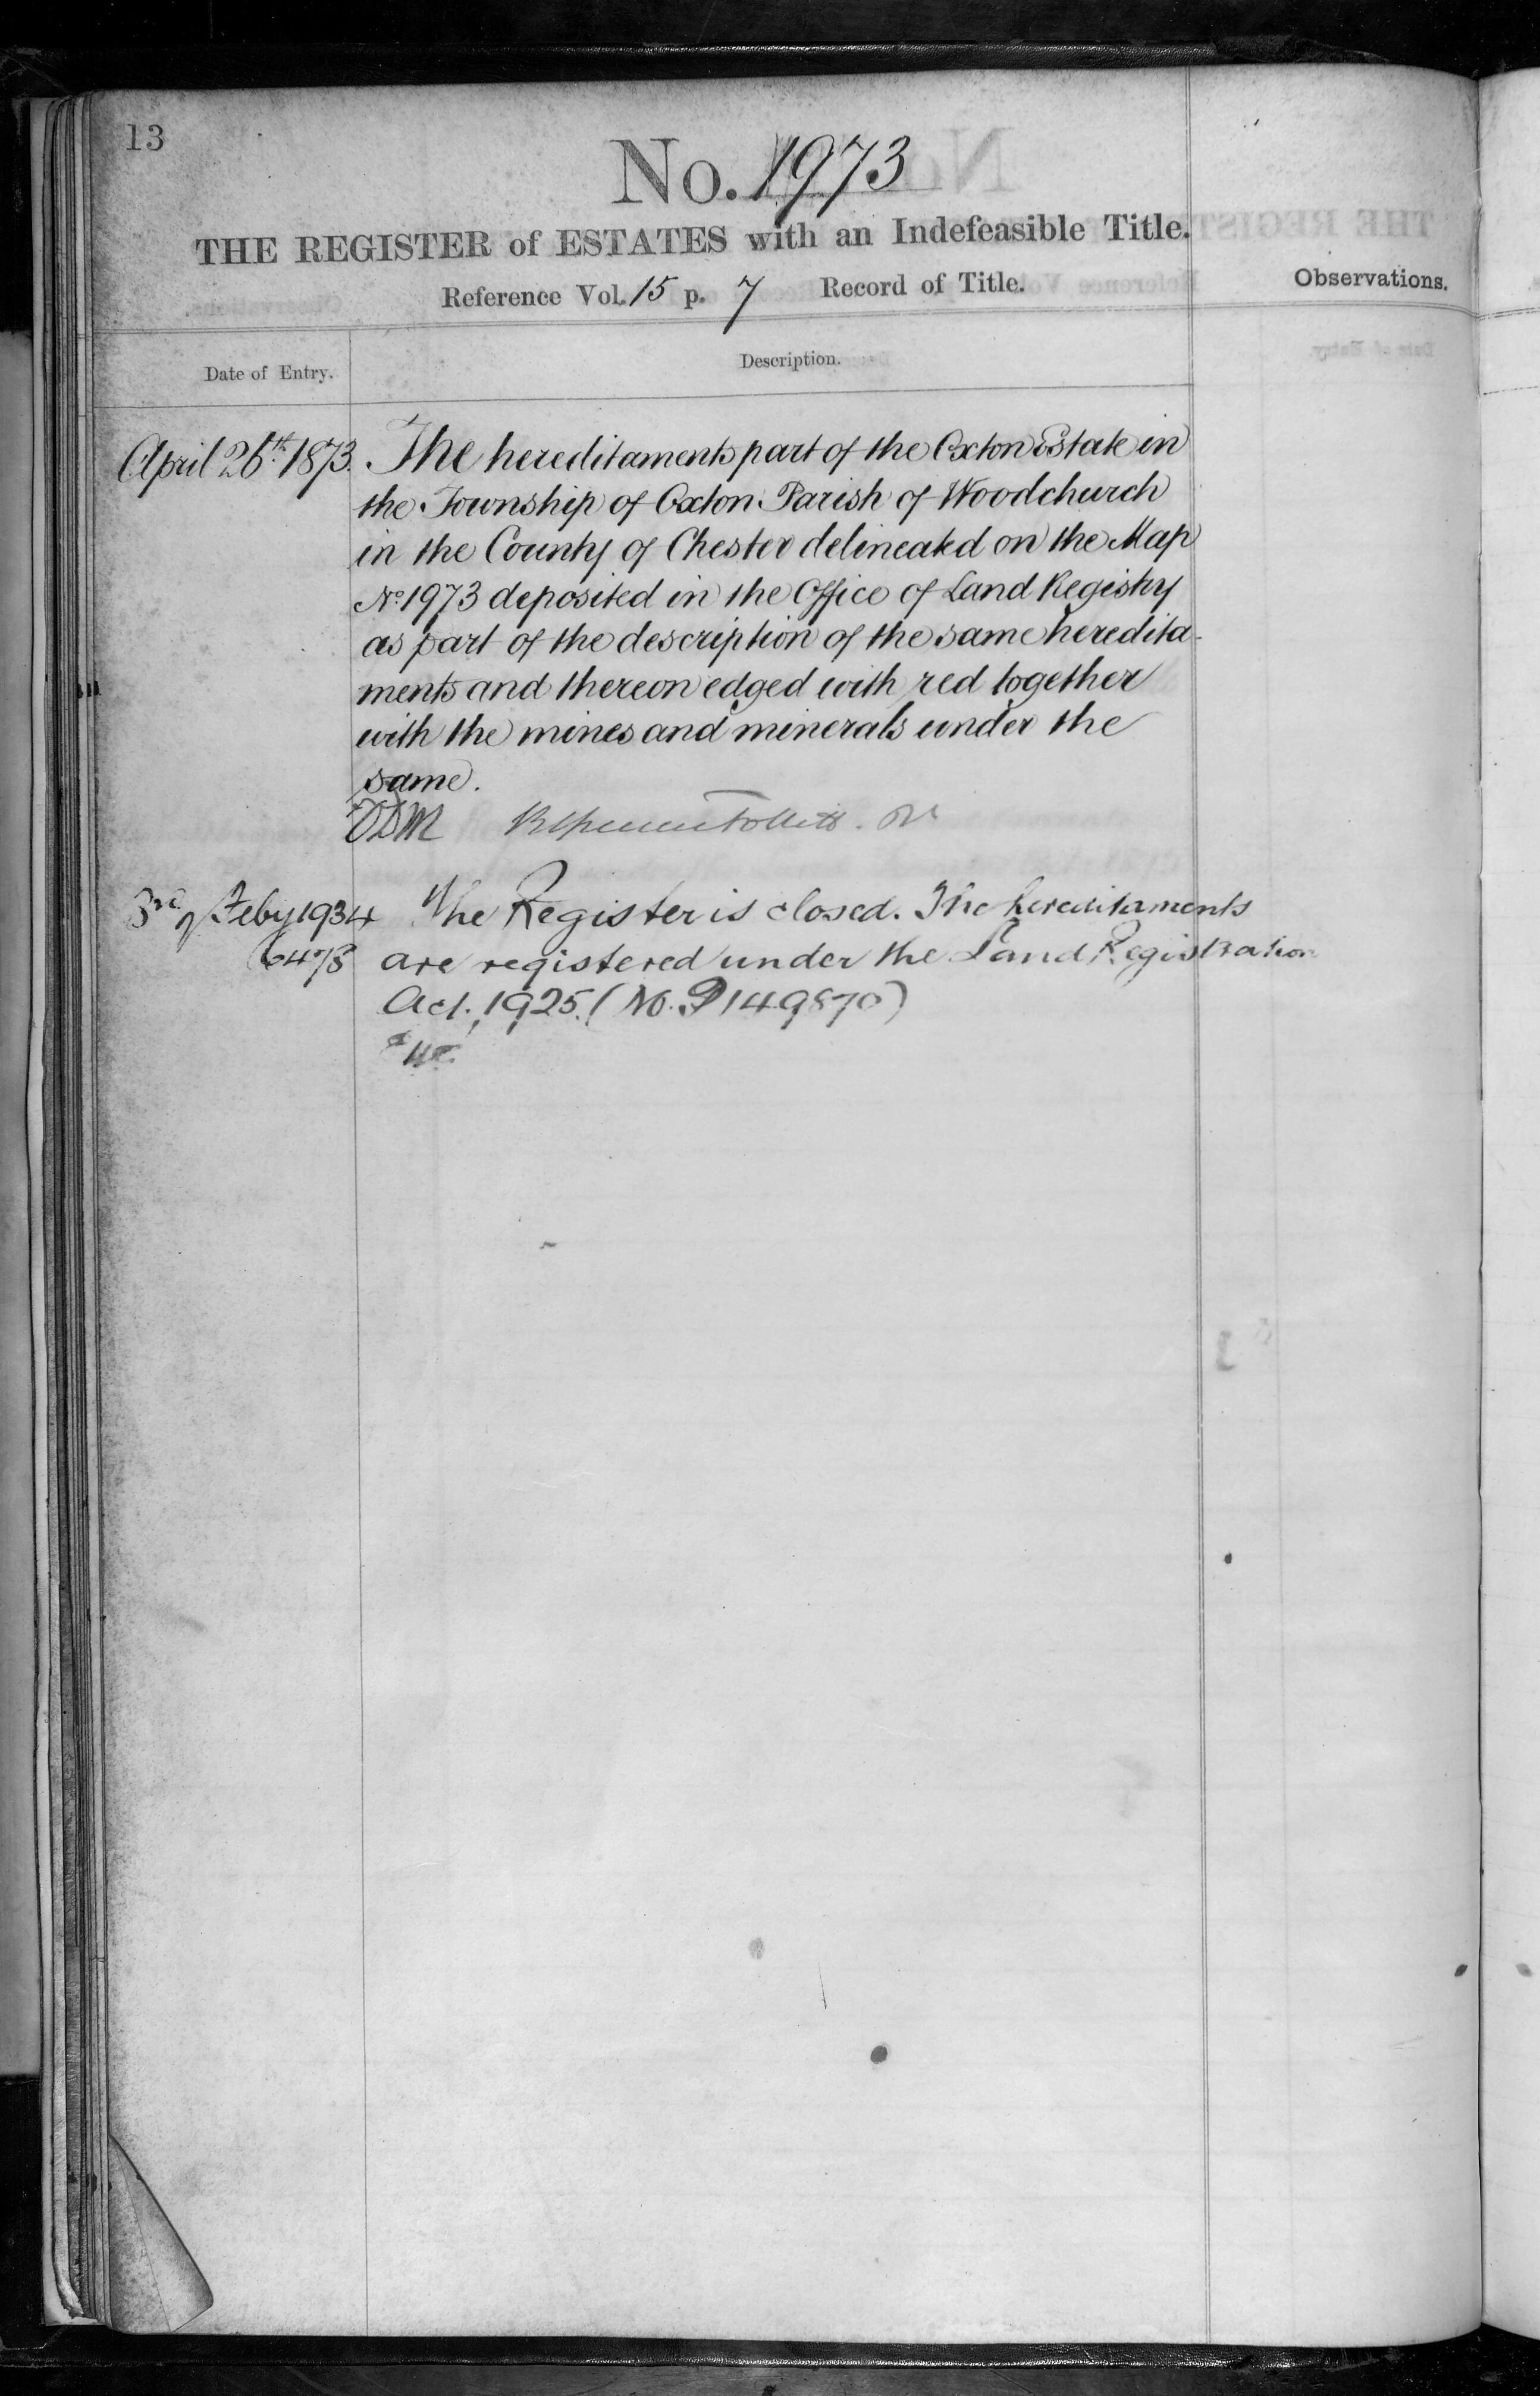 13
No. 1973
THE REGISTER of ESTATES with an Indefeasible Title.
Reference Vol. 15 p. 7 Record of Title.
Observations.
Date of Entry.
Description.
April 26th 1873. The hereditaments part of the Oxton Estate in
the Township of Oxton Parish of Woodchurch
in the County of Chester delineated on the Map
No. 1973 deposited in the Office of Land Registry
as part of the description of the same heredita-
ments and thereon edged with red together
with the mines and minerals under the
same.
3rd of Feby 1934 The Register is closed. The hereditaments
are registered under the Land Registration
Act. 1925. (No. P149870)